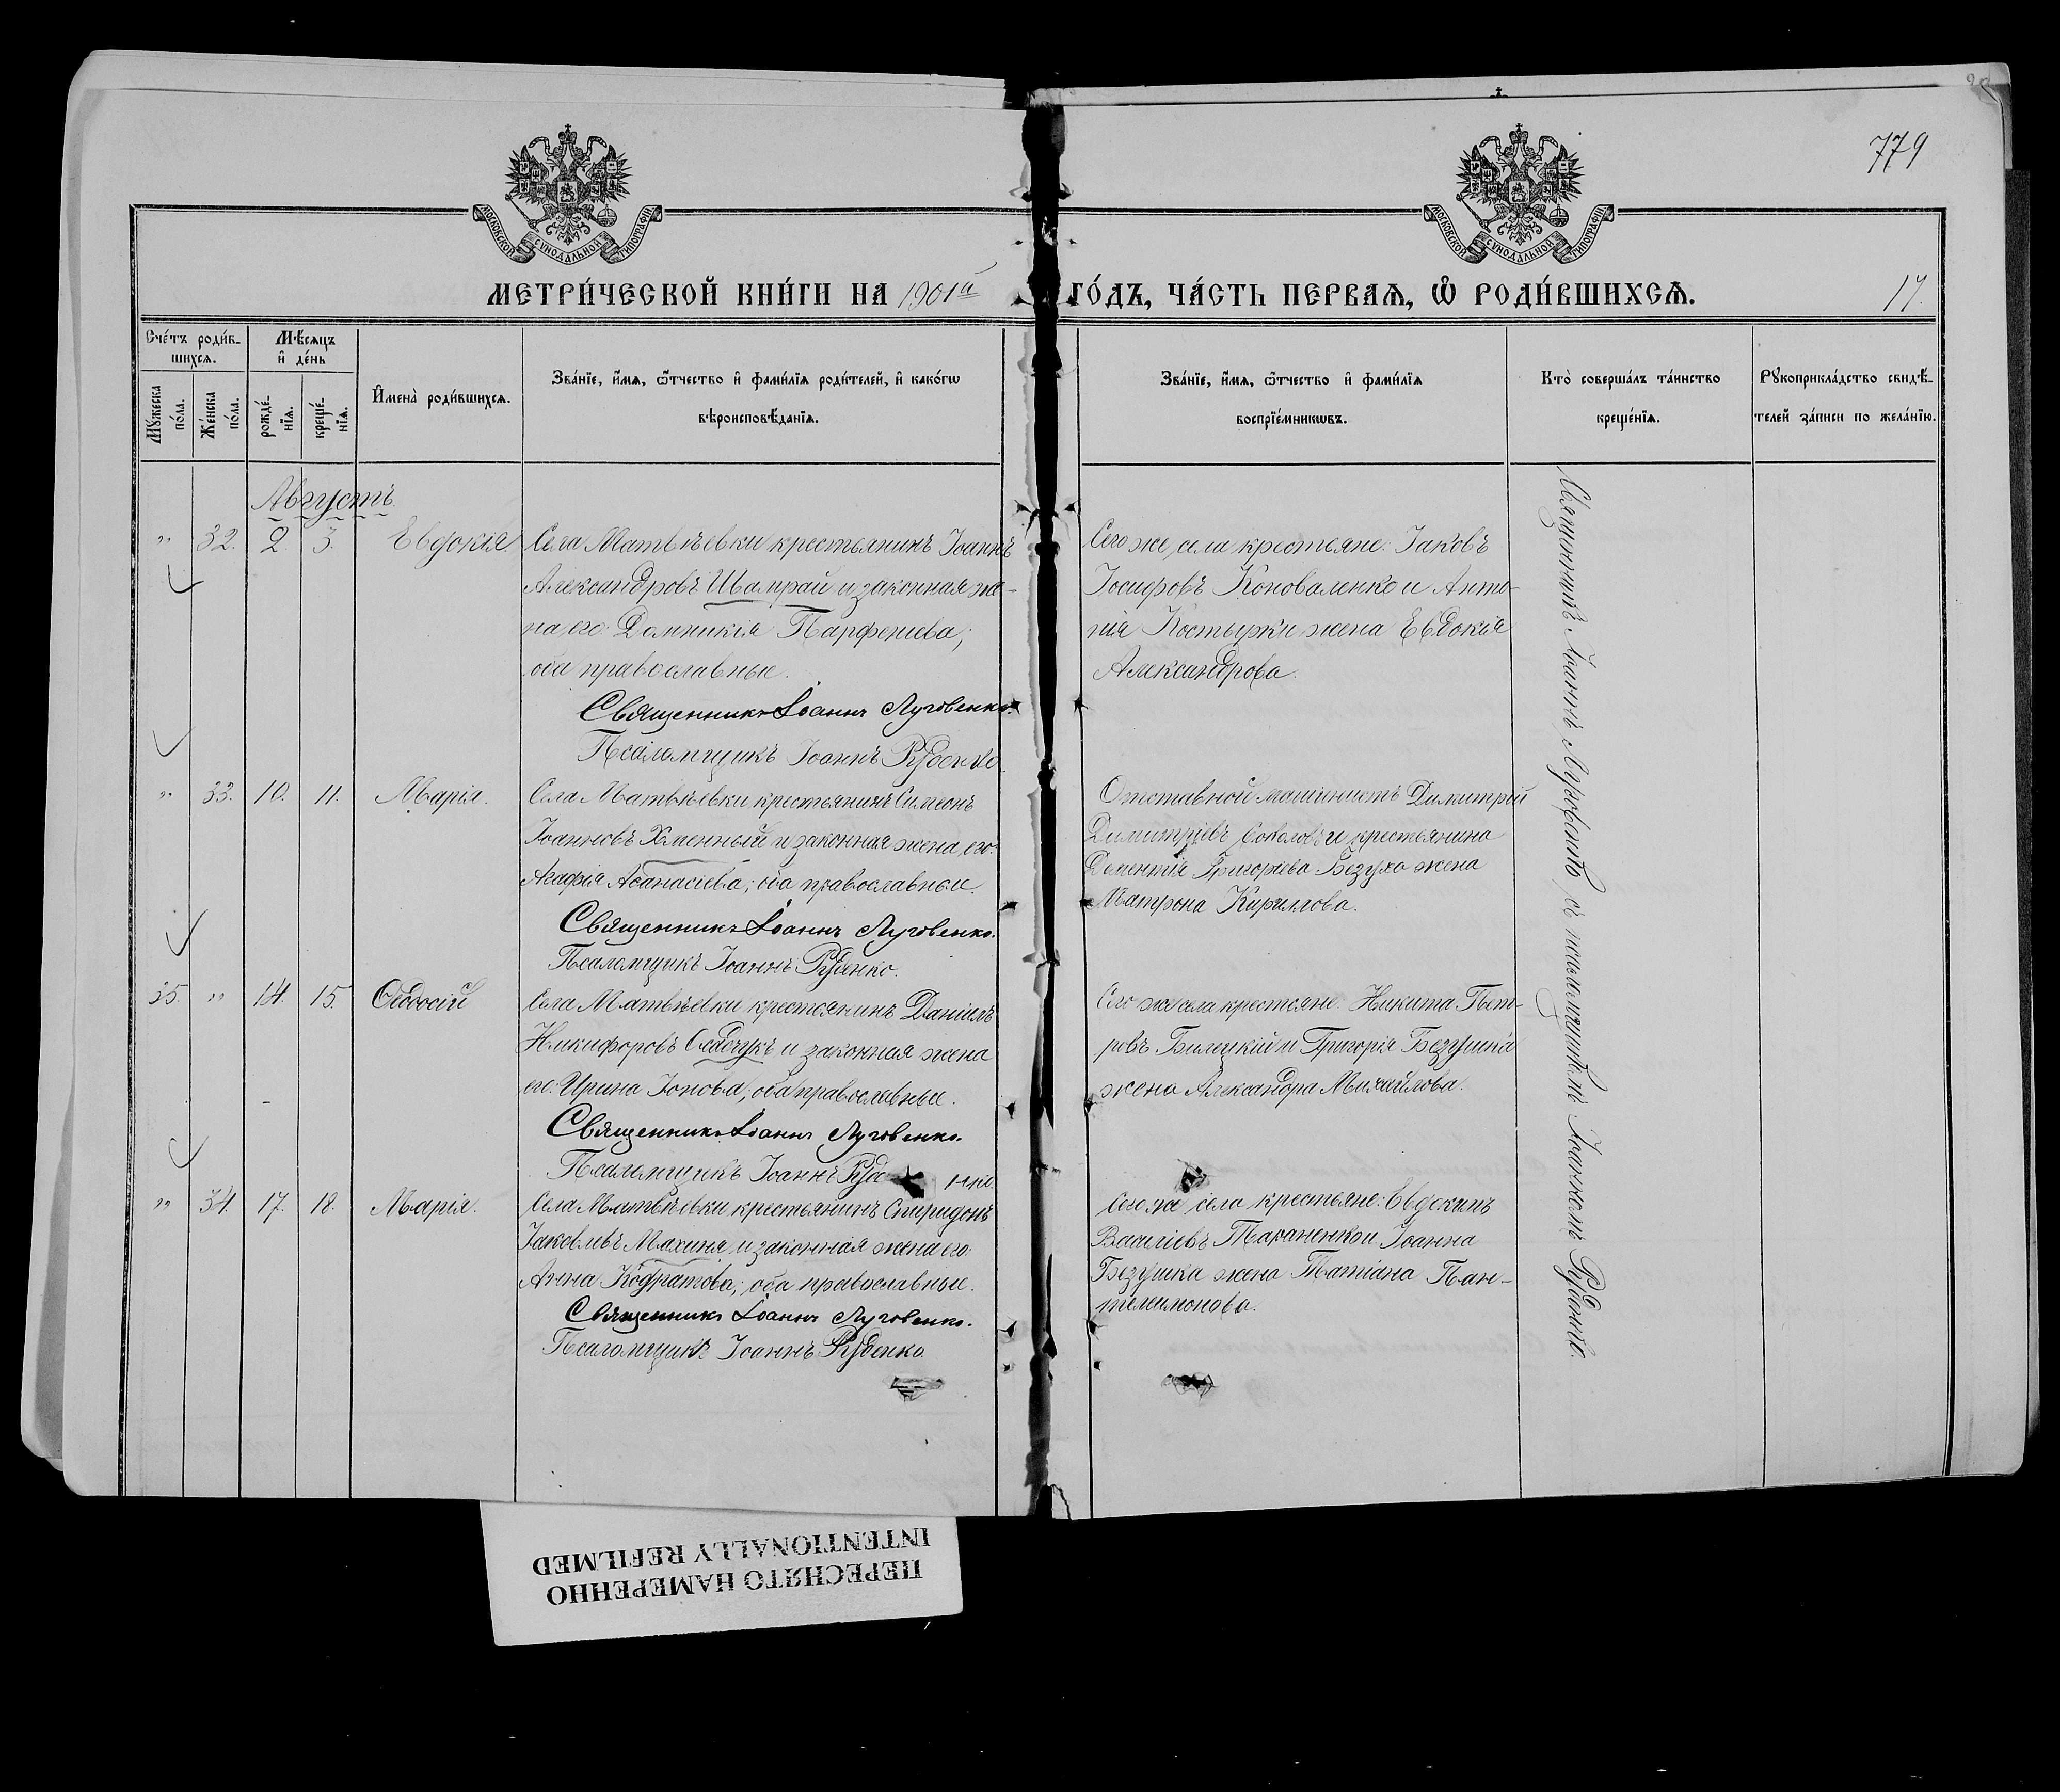 779
МОСКОВСКОЙ СУНОДАЛЬНОЙ ТИПОГРАФІИ
МОСКОВСКОЙ СУНОДАЛЬНОЙ ТИПОГРАФІИ
МЕТРИ́ЧЕСКОЙ КНИ́ГИ НА 1901й ГО́ДЪ, ЧА́СТЬ ПЕРВАЯ, Ѡ҆ РОДИ́ВШИХСѦ.
17.
Сче́тъ роди́в-
шихсѧ.
Мѣ́сѧцъ
и҆ де́нь
Мꙋ́жеска
по́ла.
Же́нска
по́ла.
рожде́-
нїѧ.
креще́-
нїѧ.
И҆мена̀ роди́вшихсѧ.
Зва́нїе, и҆́мѧ, ѻ҆́тчество и҆ фами́лїѧ роди́телей, и҆ како́гѡ
вѣроисповѣ́данїѧ.
Зва́нїе, и҆́мѧ, ѻ҆́тчество и҆ фами́лїѧ
воспрїе́мникѡвъ.
Кто̀ соверша́лъ та́инство
креще́нїѧ.
Рꙋкоприкла́дство свидѣ́-
телей за́писи по жела́нїю.
Августъ.
" 32. 2. 3. Евдокія.
Села Матвѣевки крестьянинъ Іоаннъ
Александровъ Шампрай и законная же-
на его: Домникія Парфенıева;
оба православные.
Священникъ Іоаннъ Луговенко.
Псаломщикъ Іоаннъ Руденко.
Сего же села крестьяне: Іаковъ
Іосифовъ Коноваленко и Анто-
нія Костырки жена Евдокія
Александрова.
" 33. 10. 11. Марія.
Села Матвѣевки крестьянинъ Симеонъ
Іоанновъ Хменный и законная жена его:
Агафія Аѳанасіева; оба православные.
Священникъ Іоаннъ Луговенко.
Псаломщикъ Іоаннъ Руденко.
Отставной машинистъ Димитрій
Димитріевъ Соколовъ и крестьянина
Дементія Григорıева Безуха жена
Матрона Кириллова.
35. " 14. 15. Ѳеодосій
Села Матвѣевки крестьянинъ Даніилъ
Никифоровъ и законная жена
его: Ирина Іонова; оба православные.
Священникъ Іоаннъ Луговенко.
Псаломщикъ Іоаннъ Руденко.
Сего же села крестьяне: Никита Пет-
ровъ Билецкій и Григорія Безушка
жена Александра Михайлова.
" 34. 17. 18. Марія.
Села Матвѣевки крестьянинъ Спиридонъ
Іаковлевъ Махиня и законная жена его:
Анна Кодратова; оба православные.
Священникъ Іоаннъ Луговенко.
Псаломщикъ Іоаннъ Руденко.
Сего же села крестьяне: Евдокимъ
Василіевъ Тараненко и Іоанна
Безушка жена Татіана Пан-
телеимонова.
Священникъ Іоаннъ Луговенко съ псаломщикомъ Іоанномъ Руденко.
ПЕРЕСНЯТО НАМЕРЕННО
INTENTIONALLY REFILMED